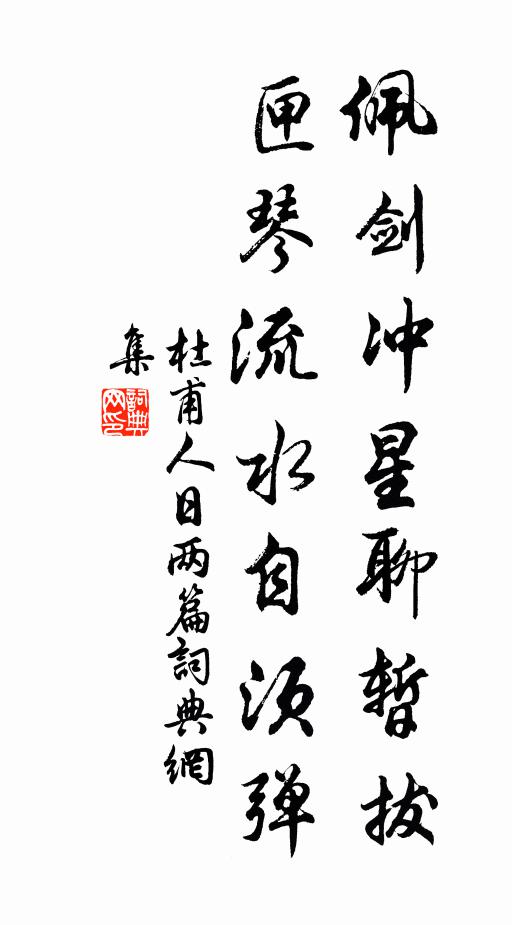 佩剑冲星聊暂拔
匣琴流水自须弹
杜甫人日两篇詞典網
集
詞典
网印